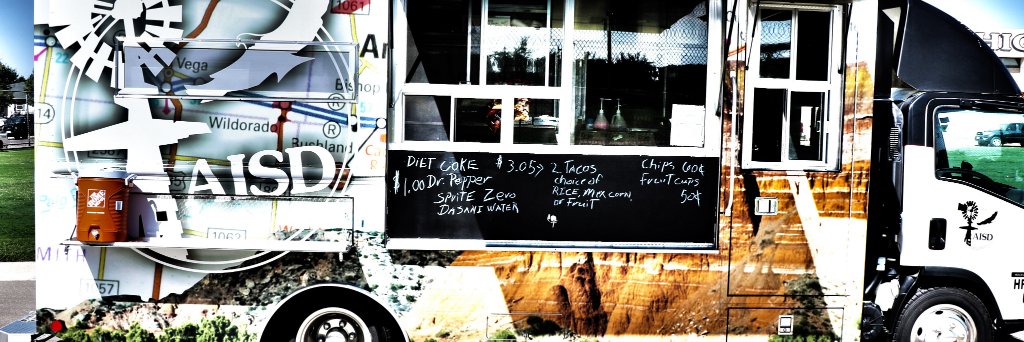 1061
Ar
Vega
Bishop
14
Wildorado
Buchland
AISD
1062
MITH
1057
DIET COKE
$1.00 Dr. Pepper
SPRITE Zero
DASANI WATER
$3.05> 2 Tacos
choice of
RICE, Mex corn,
or Fruit
Chips 60¢
fruit cups
50¢
HIG
AISD